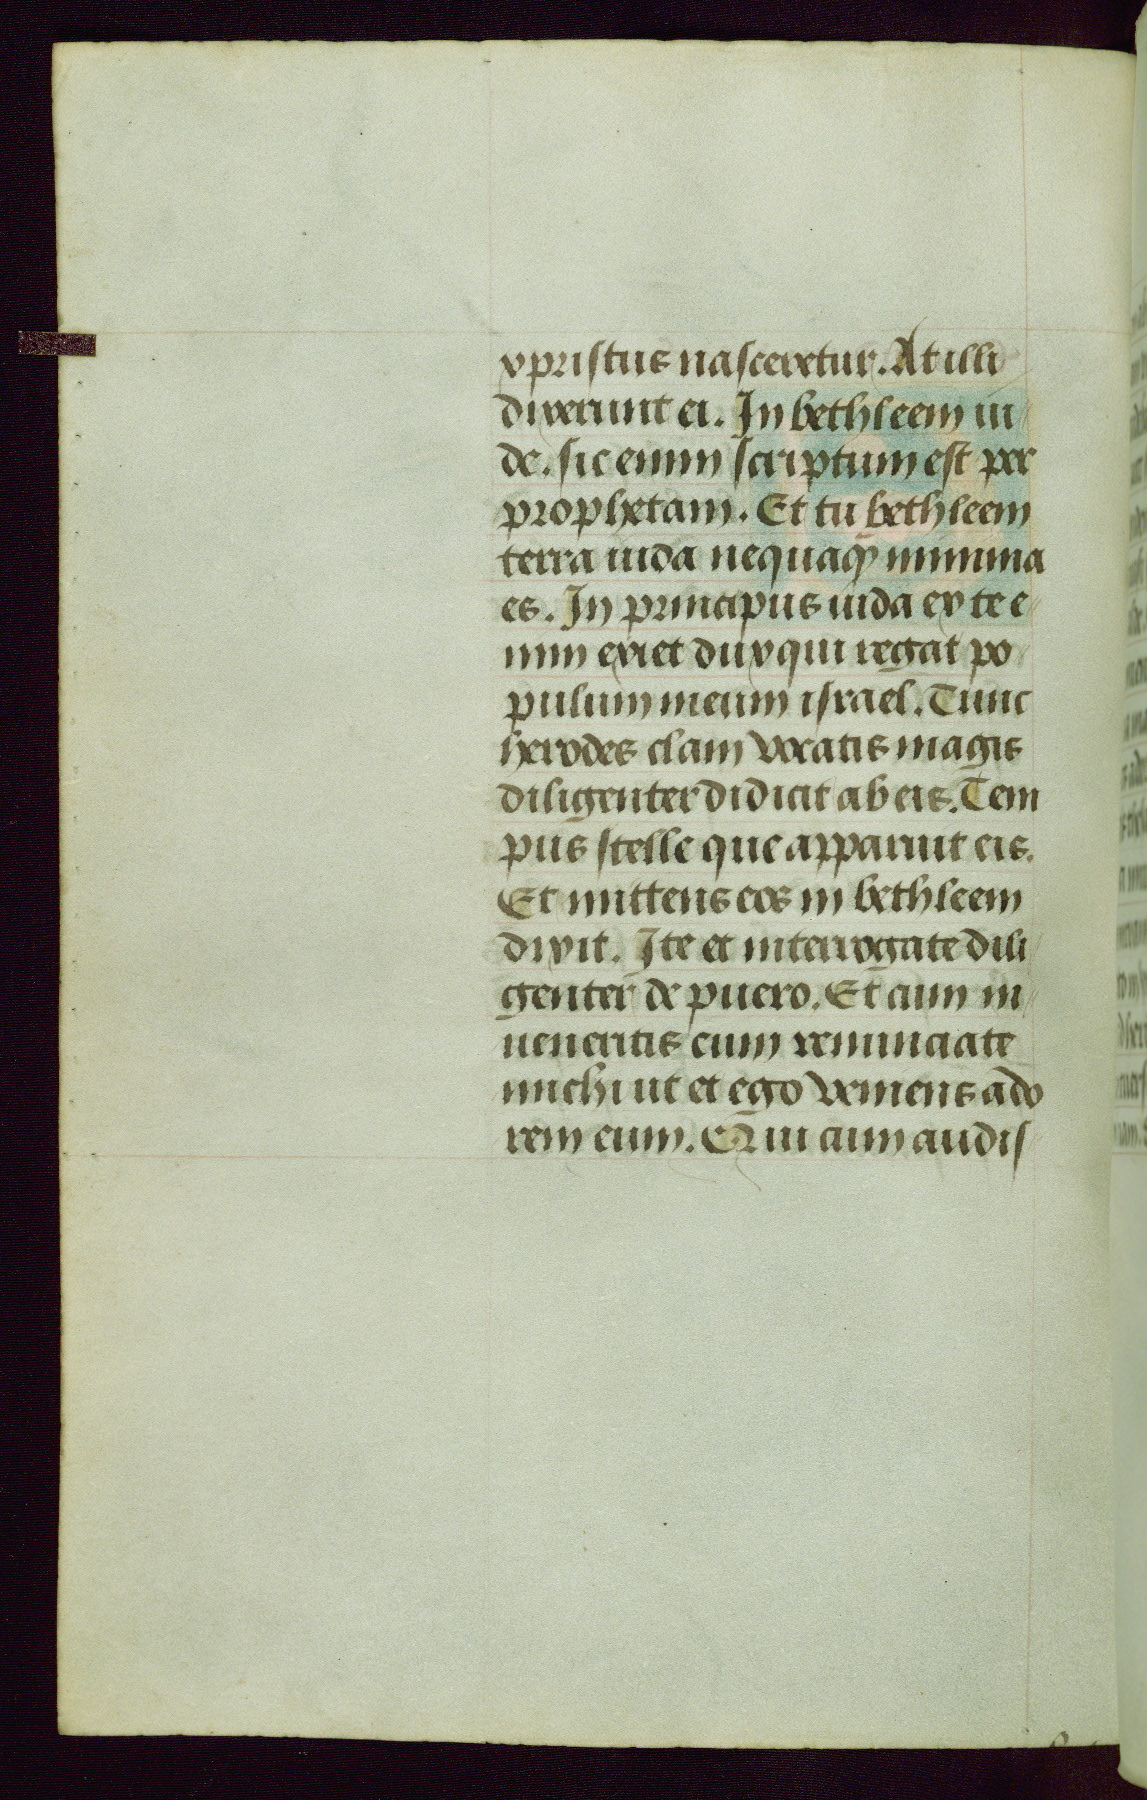 xpristus nasceretur. At illi
dixerunt ei. In bethleem iu
de. sic enim scriptum est per
prophetam. Et tu bethleem
terra iuda nequaq minima
es. In principus iuda ex te e
nim exiet dux qui regat po
pulum meum israel. Tunc
herodes clam vocatis magis
diligenter didicit ab eis. Tem
pus stelle que apparuit eis.
Et mittens eos in bethleem
dixit. Ite et interrogate dili
genter de puero. Et cum in
ueneritis eum renunciate
michi ut et ego veniens ado
rem eum. Qui cum audis